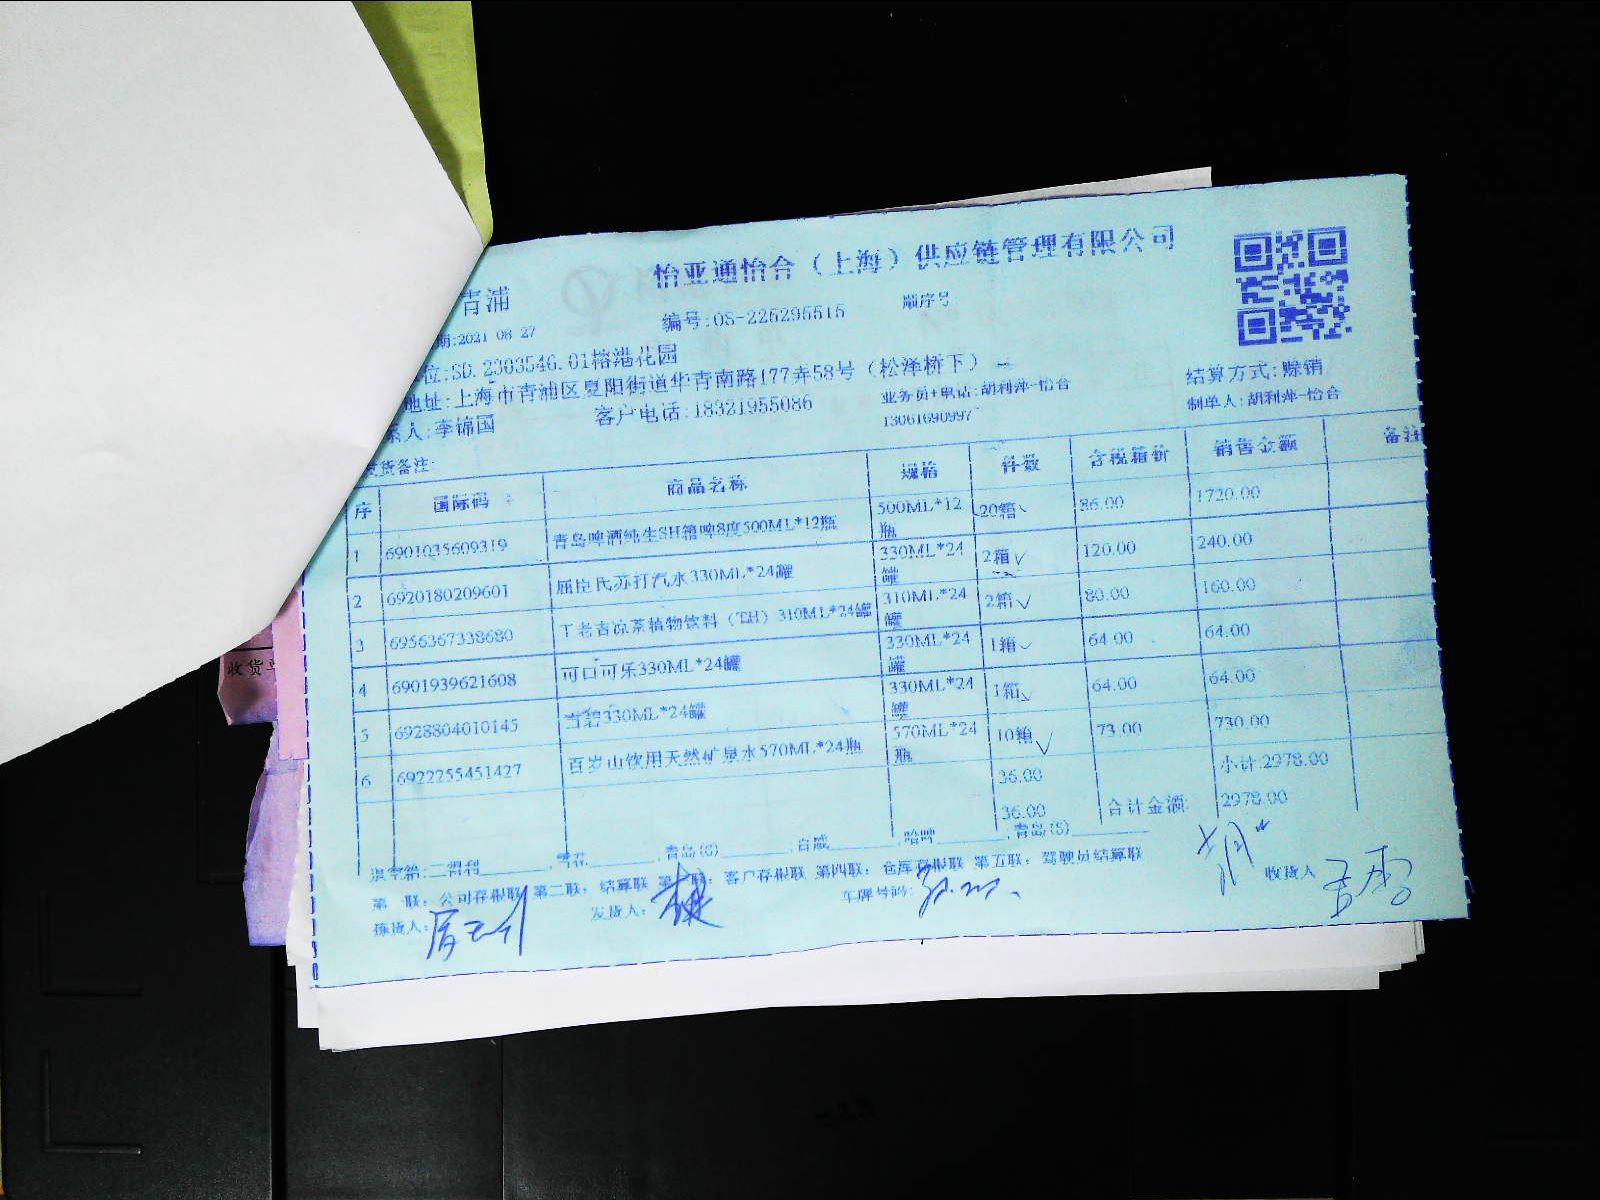 怡亚通怡合（上海）供应链管理有限公司
青浦
编号:OS-225295515
顺序号
期:2021-08-27
位:SD.2303546.01榕港花园
地址:上海市青浦区夏阳街道华青南路177弄58号（松泽桥下）
结算方式:赊销
系人:李锦国
客户电话:18321955086
业务员+电话:胡利萍-怡合
13061690997
制单人:胡利萍-怡合
发货备注:
序 国际码 商品名称 规格 件数 含税箱价 销售金额 备注
1 6901035609319 青岛啤酒纯生SH箱啤8度500ML*12瓶 500ML*12瓶 20箱 86.00 1720.00
2 6920180209601 屈臣氏苏打汽水330ML*24罐 330ML*24罐 2箱 120.00 240.00
3 6956367338680 T老吉凉茶植物饮料（TH）310ML*24罐 310ML*24罐 2箱 80.00 160.00
4 6901939621608 可口可乐330ML*24罐 330ML*24罐 1箱 64.00 64.00
5 6928804010145 雪碧330ML*24罐 330ML*24罐 1箱 64.00 64.00
6 6922255451427 百岁山饮用天然矿泉水570ML*24瓶 570ML*24瓶 10箱 73.00 730.00
36.00 小计:2978.00
36.00 合计金额: 2978.00
退空箱:二得利______,雪花______,青岛(8)______,百威______,哈啤______,青岛(S)______
第一联：公司存根联 第二联：结算联 第三联：客户存根联 第四联：仓库存根联 第五联：驾驶员结算联
拣货人:
发货人:
车牌号码:
收货人
收货